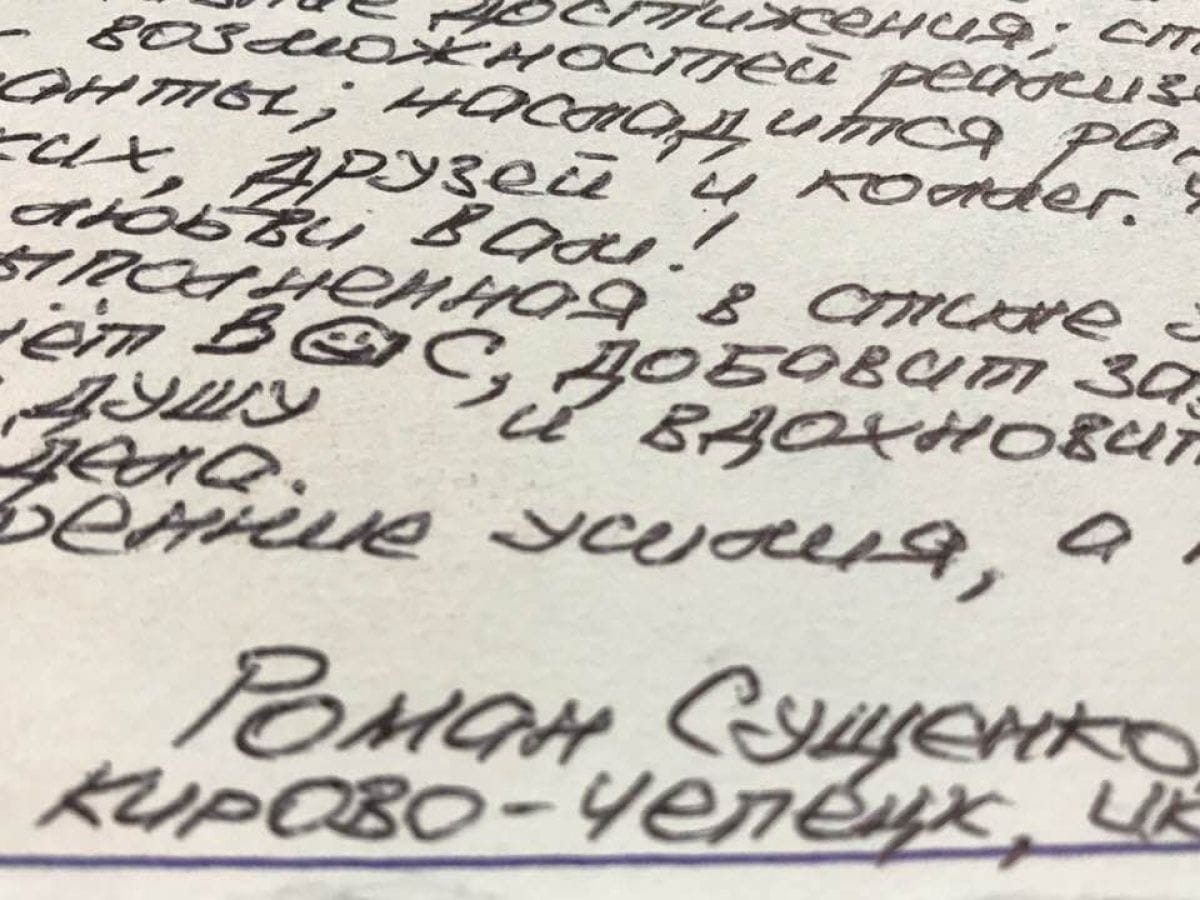 достижения; ст
- возможностей реализ
анты; насладится рад
ких, друзей и коллег.
любви Вам!
ыполненная в стиле
нёт В☺С, добавит за
душу и вдохновит
дела.
ренние усилия, а
Роман Сущенко
Кирово-Чепецк, ИК